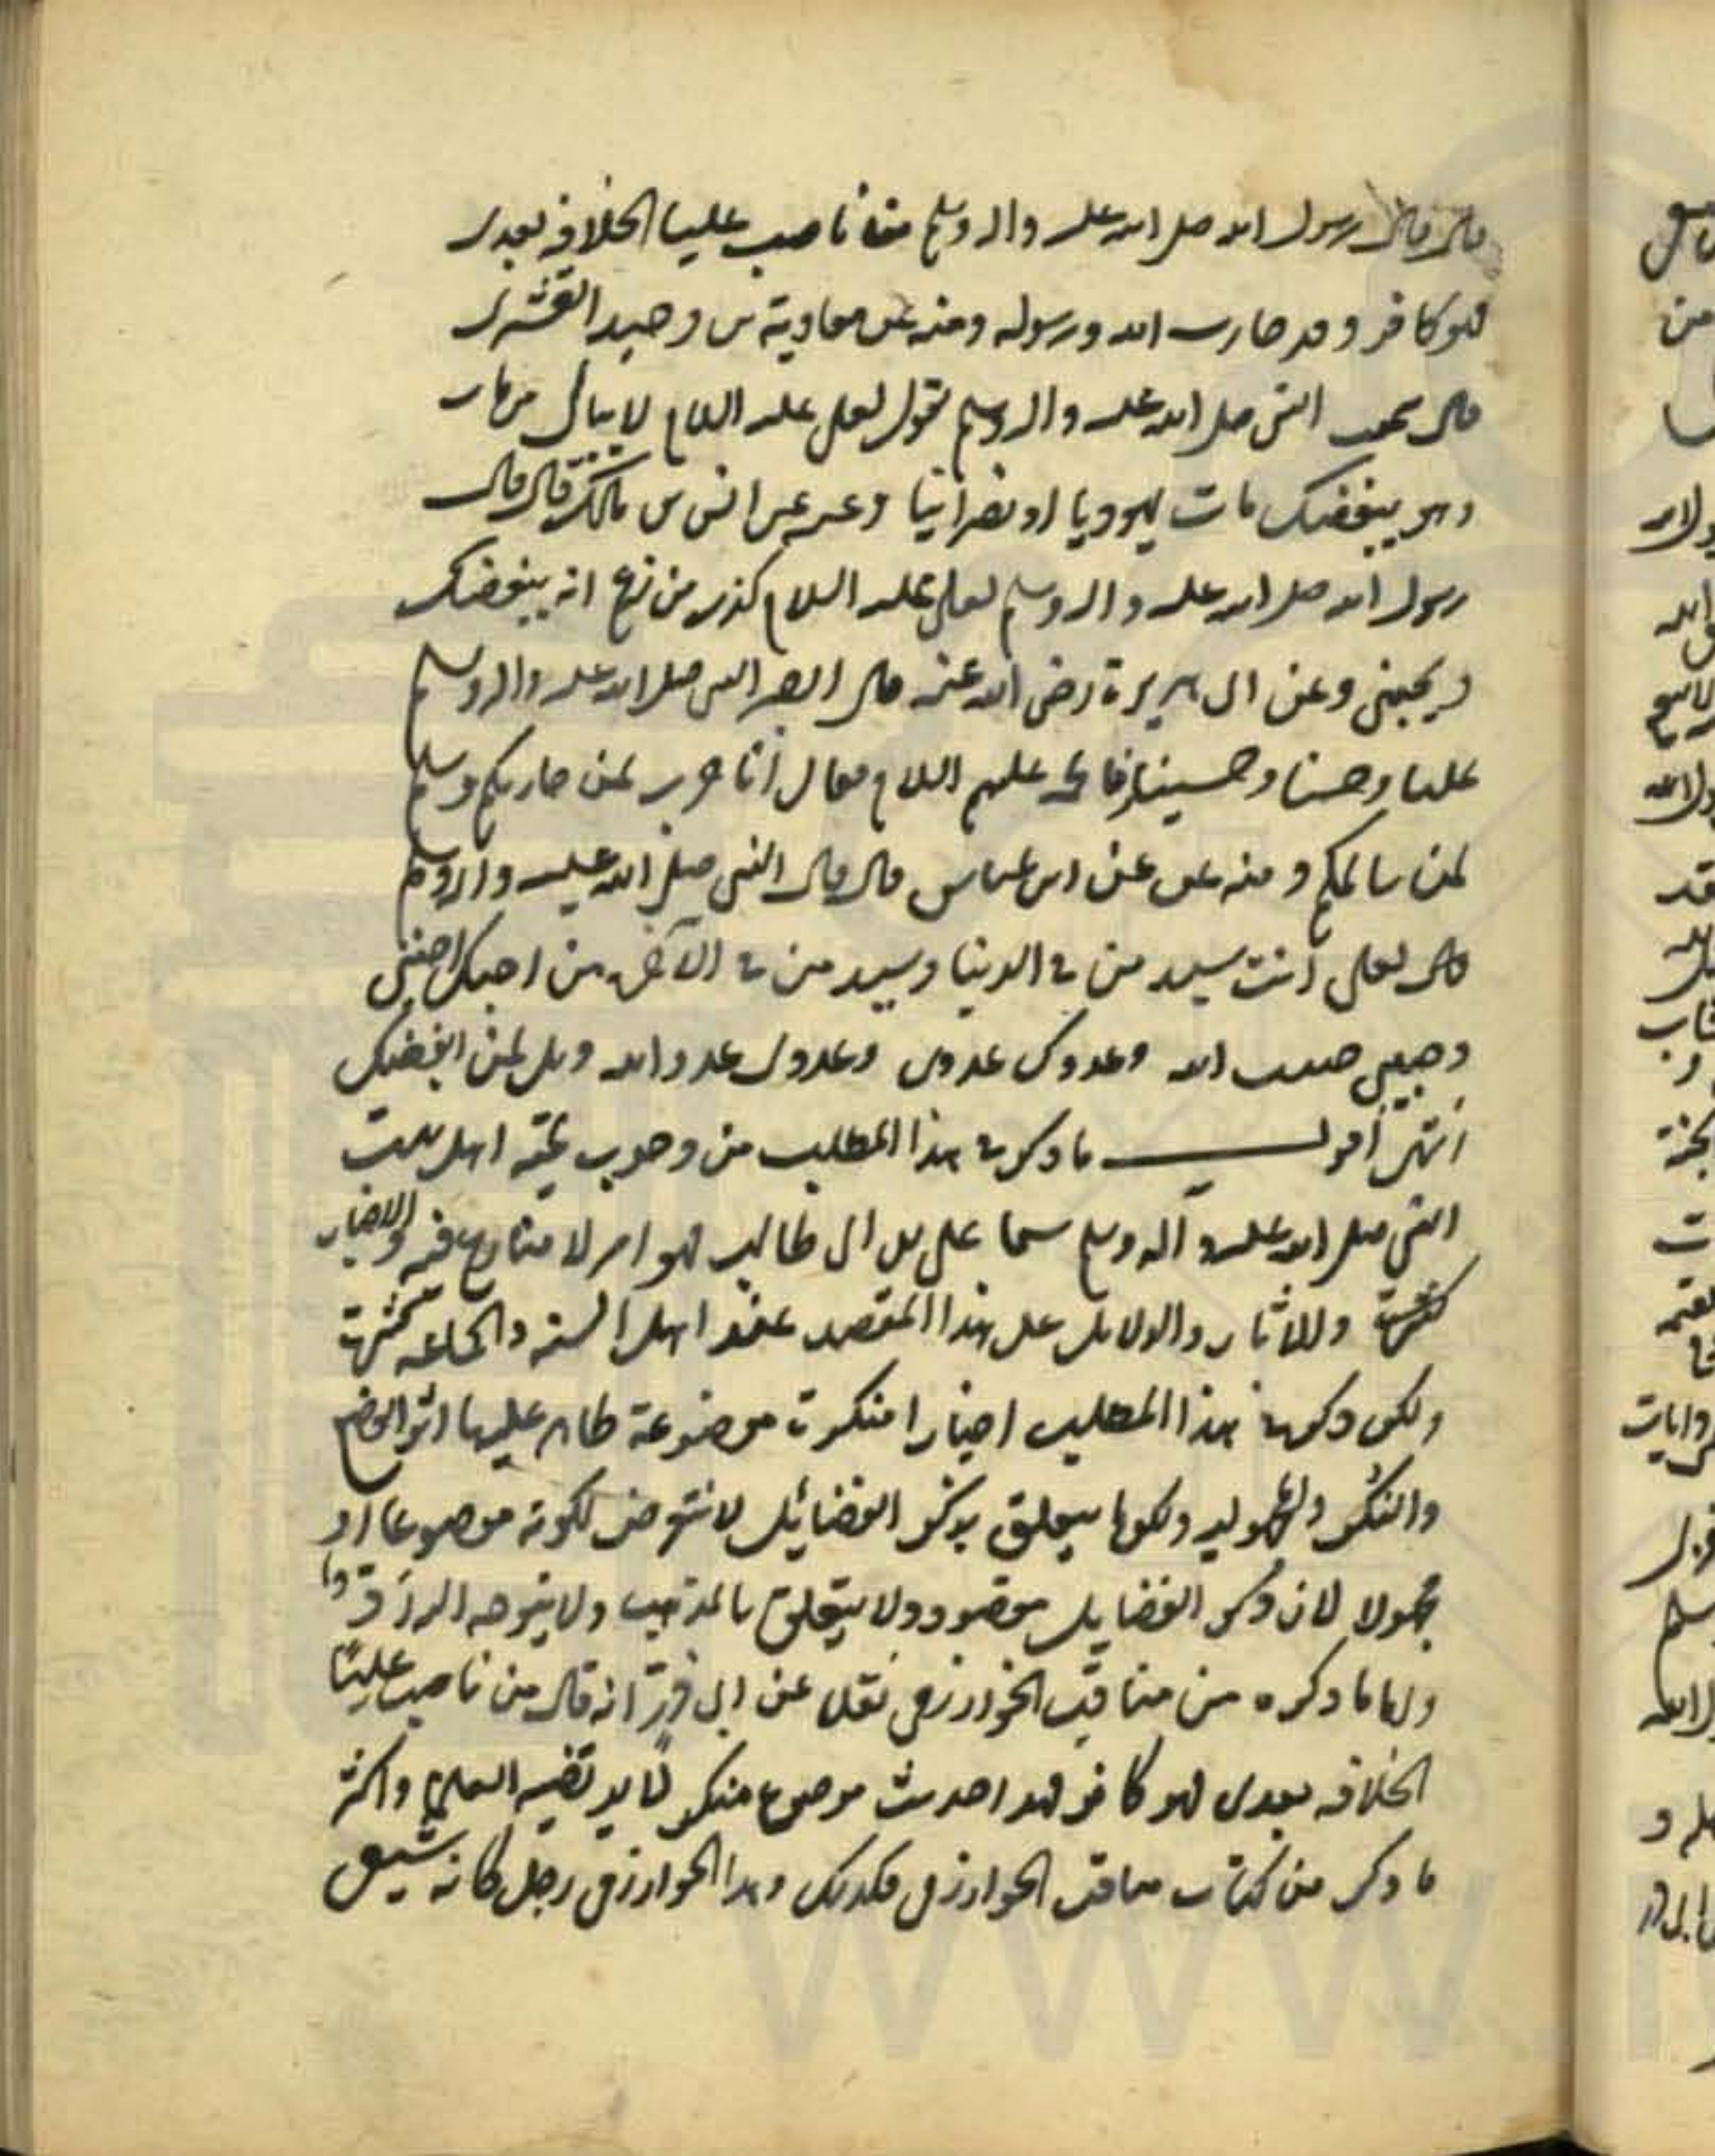 قال قال رسول الله صلى الله عليه واله وسلم من ناصب عليا الخلافة بعدى
فهو كافر وقد حارب الله ورسوله ومنه عن معاوية بن وحيد القشيرى
قال سمعت النبى صلى الله عليه واله وسلم يقول لعلى عليه السلام لا يبالى من مات
وهو يبغضك مات يهوديا او نصرانيا وعنه عن انس بن مالك قال قال
رسول الله صلى الله عليه واله وسلم لعلى عليه السلام كذب من زعم انه يبغضك
ويحبنى وعن ابى هريرة رضى الله عنه قال ابصر النبى صلى الله عليه واله وسلم
عليا وحسنا وحسينا وفاطمه عليهم السلام فقال أنا حرب لمن حاربكم وسلم
لمن سالمكم ومنه عن ابن عباس قال قال النبى صلى الله عليه واله وسلم
قال لعلى أنت سيد من فى الدنيا وسيد من فى الآخرة من احبك احبنى
وحبيبى حبيب الله وعدوك عدوى وعدوى عدو الله ويل لمن ابغضك
انتهى أقول ما ذكر فى هذا المطلب من وجوب محبة اهل بيت
النبى صلى الله عليه وآله وسلم سيما على بن ابى طالب فهو امر لا منازع فيه والاخبار
والآثار والدلايل على هذا المقصد عند اهل السنه والجماعه
ولكن ذكر فى هذا المطلب اخبارا منكرة موضوعة ظاهر عليها اثر الوضع
والنكر ولكونها يتعلق بذكر الفضائل لا نتعرض لكونه موضوعا او
مجهولا لان ذكر الفضايل مقصود ولا يتعلق بالمذهب ولا يتوجه الرد
واما ما ذكره من مناقب الخوارزمى نقله عن ابى ذر انه قال من ناصب عليا
الخلافه بعدى فهو كافر فهذا حديث موضوع منكر لا يرتضيه العلماء واكثر
ما ذكر من كتاب مناقب الخوارزمى فكذلك وهذا الخوارزمى رجل كانه شيعى